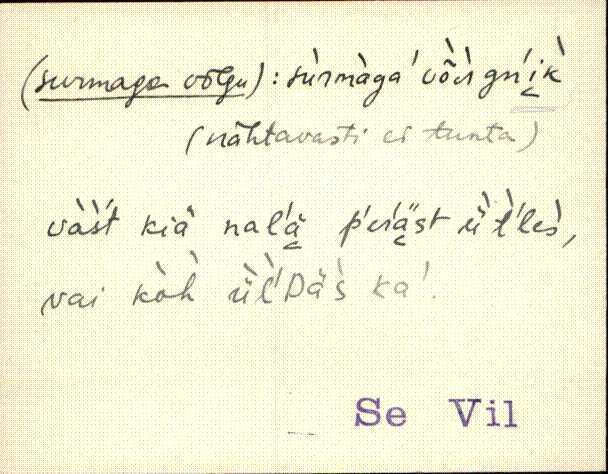 (surmaga võlgu): sùrmàga' vȭlgnìk
(nähtavasti ei tunta)
vàst kiä nal'ä̬ perä̬st ǜt'les,
vai kòh ǜl'Däs ka'.
Se Vil